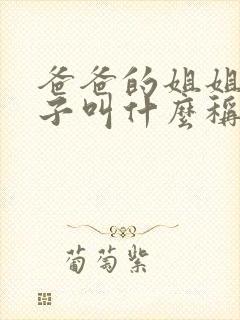 爸爸的姐姐
子叫什麼稱
葡萄紫